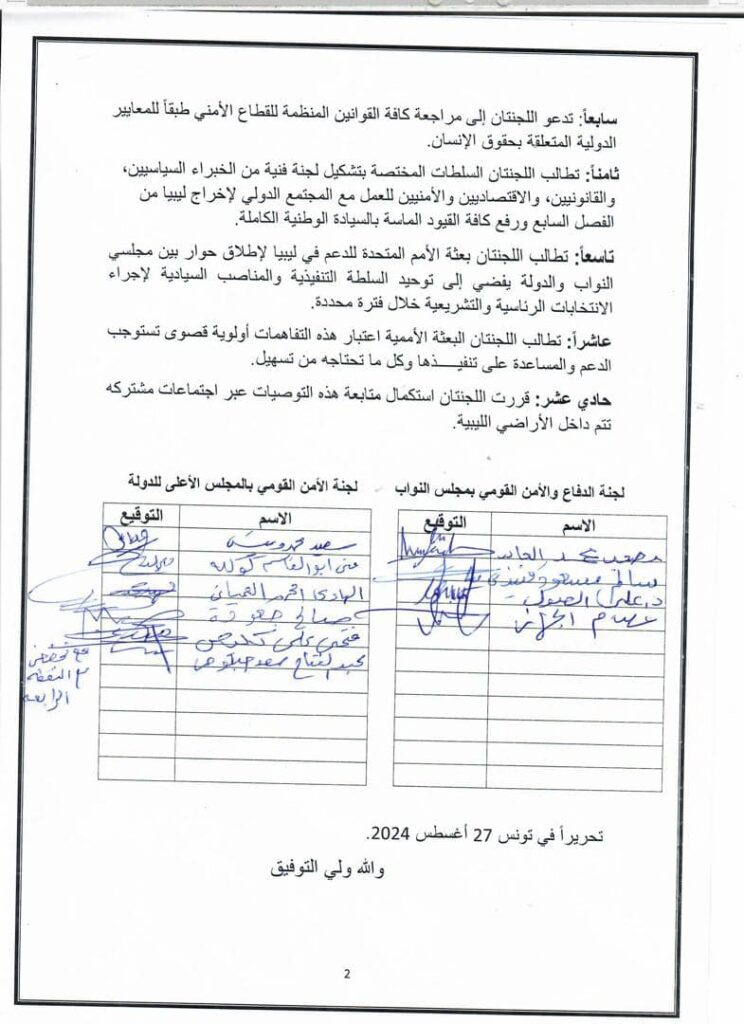 سابعاً: تدعو اللجنتان إلى مراجعة كافة القوانين المنظمة للقطاع الأمني طبقاً للمعايير
الدولية المتعلقة بحقوق الإنسان.
ثامناً: تطالب اللجنتان السلطات المختصة بتشكيل لجنة فنية من الخبراء السياسيين،
والقانونيين، والاقتصاديين والأمنيين للعمل مع المجتمع الدولي لإخراج ليبيا من
الفصل السابع ورفع كافة القيود الماسة بالسيادة الوطنية الكاملة.
تاسعاً: تطالب اللجنتان بعثة الأمم المتحدة للدعم في ليبيا لإطلاق حوار بين مجلسي
النواب والدولة يفضي إلى توحيد السلطة التنفيذية والمناصب السيادية لإجراء
الانتخابات الرئاسية والتشريعية خلال فترة محددة.
عاشراً: تطالب اللجنتان البعثة الأممية اعتبار هذه التفاهمات أولوية قصوى تستوجب
الدعم والمساعدة على تنفيـــــذها وكل ما تحتاجه من تسهيل.
حادي عشر: قررت اللجنتان استكمال متابعة هذه التوصيات عبر اجتماعات مشتركه
تتم داخل الأراضي الليبية.
لجنة الدفاع والأمن القومي بمجلس النواب
الاسم التوقيع
مصعب محمد العابد
سالم مسعود قنيدي
د. علي الصول
عصام الجهاني
لجنة الأمن القومي بالمجلس الأعلى للدولة
الاسم التوقيع
سعيد محمد ونيس
منى ابوالقاسم كوكله
الهادي احمد
صالح جعودة
فتحي علي
عبدالفتاح
مع تحفظي
مع النقطة
الرابعه
تحريراً في تونس 27 أغسطس 2024.
والله ولي التوفيق
2